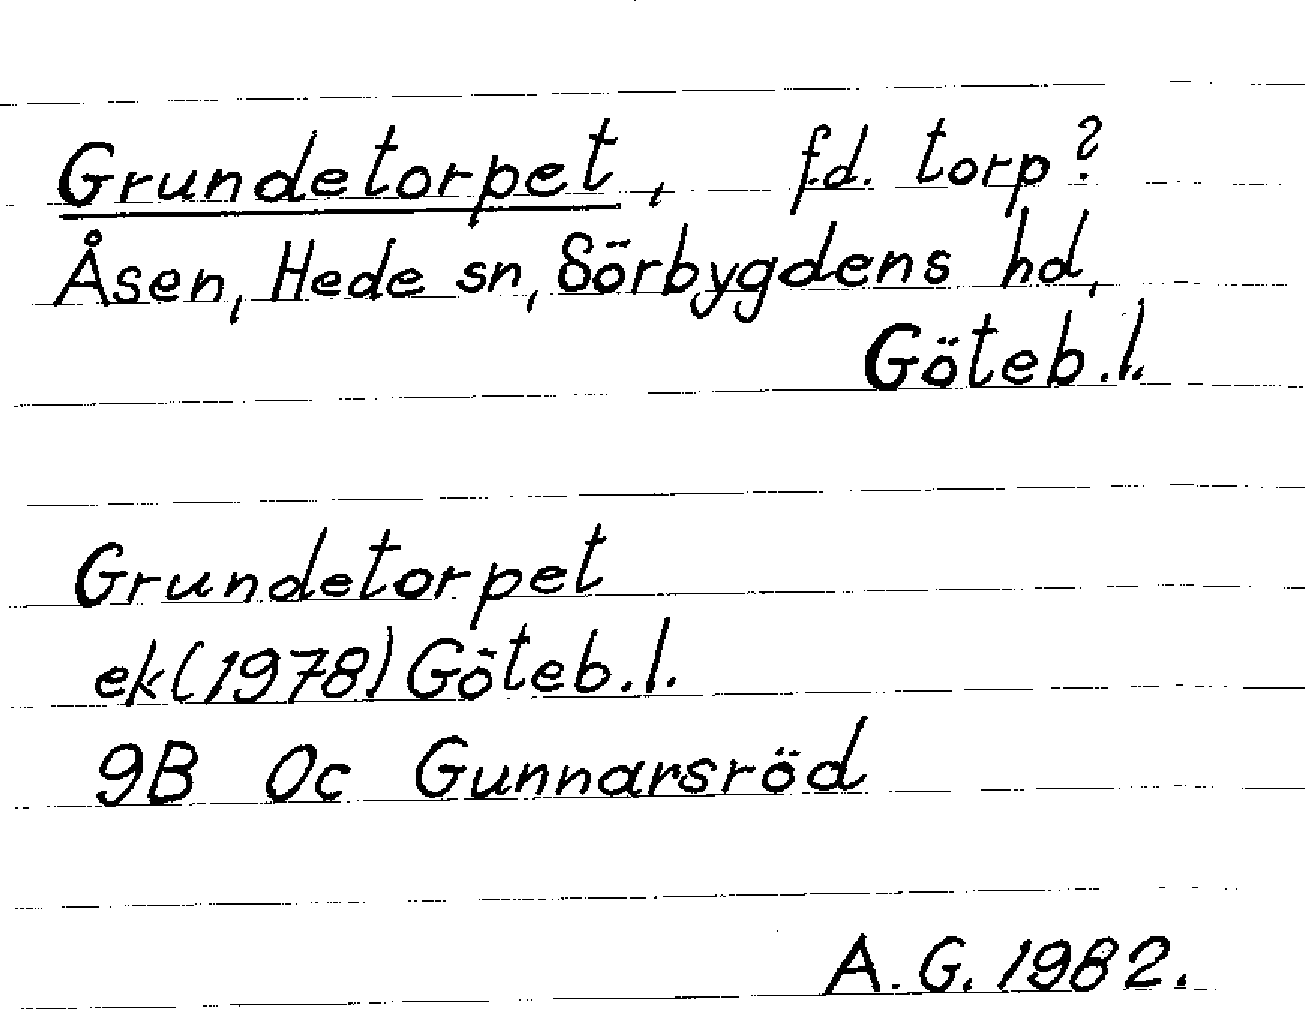 Grundetorpet, f.d. torp?
Åsen, Hede sn, Sörbygdens hd,
Göteb.l.
Grundetorpet
ek(1978) Göteb.l.
9B 0c Gunnarsröd
A.G. 1982.